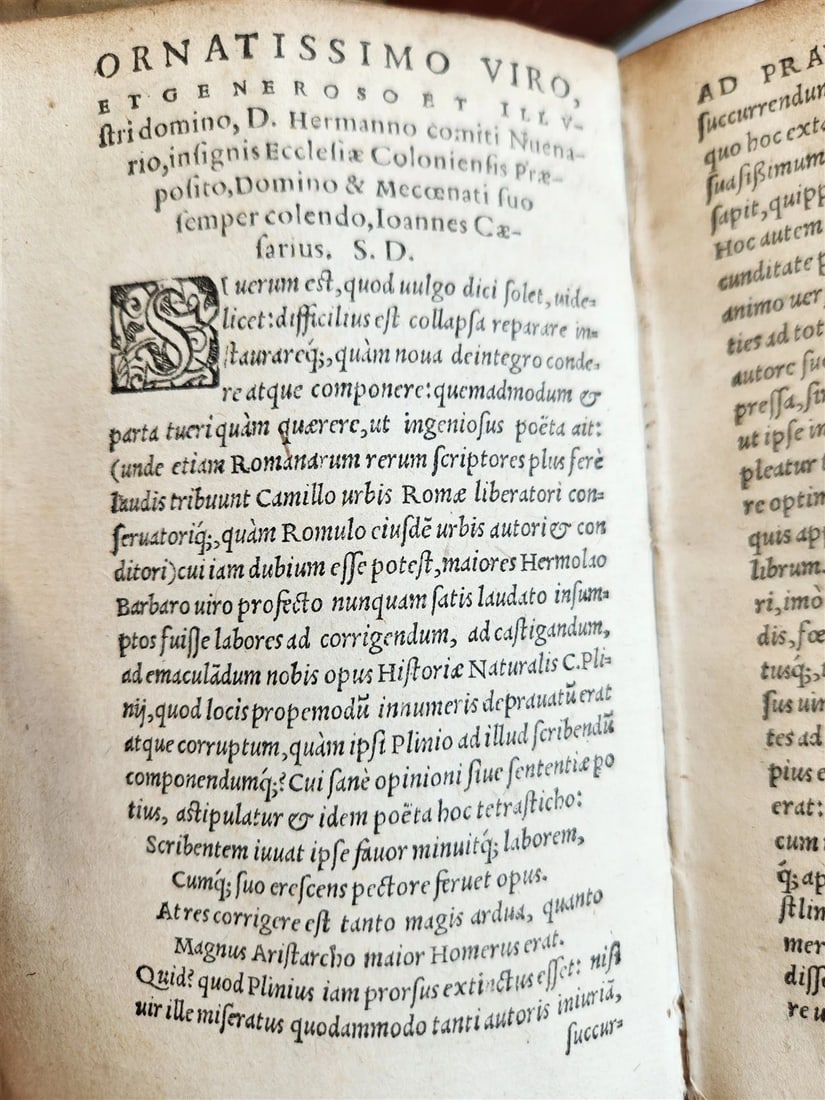 ORNATISSIMO VIRO,
ET GENEROSO ET ILLV-
ſtri domino, D. Hermanno comiti Nuena-
rio, inſignis Eccleſiæ Colonienſis Præ-
poſito, Domino & Mecœnati ſuo
ſemper colendo, Ioannes Cæ-
ſarius. S. D.
SI uerum eſt, quod uulgo dici ſolet, uide-
licet: difficilius eſt collapſa reparare in-
ſtaurareq́;, quàm noua deintegro conde-
re atque componere: quemadmodum &
parta tueri quàm quærere, ut ingenioſus poëta ait:
(unde etiam Romanarum rerum ſcriptores plus ferè
laudis tribuunt Camillo urbis Romæ liberatori con-
ſeruatoriq́;, quàm Romulo eiuſdẽ urbis autori & con
ditori) cui iam dubium eſſe poteſt, maiores Hermolao
Barbaro uiro profecto nunquam ſatis laudato inſum-
ptos fuiſſe labores ad corrigendum, ad caſtigandum,
ad emaculãdum nobis opus Hiſtoriæ Naturalis C. Pli-
nij, quod locis propemodũ innumeris deprauatũ erat
atque corruptum, quàm ipſi Plinio ad illud ſcribendũ
componendumq́;? Cui ſanè opinioni ſiue ſententiæ po
tius, aſtipulatur & idem poëta hoc tetraſticho:
Scribentem iuuat ipſe fauor minuitq́; laborem,
Cumq́; ſuo creſcens pectore feruet opus.
At res corrigere eſt tanto magis ardua, quanto
Magnus Ariſtarcho maior Homerus erat.
Quid? quod Plinius iam prorſus extinctus eſſet: niſi
uir ille miſeratus quodammodo tanti autoris iniuriã,
ſuccur-
AD PRA
ſuccurrendum
quo hoc exta
ſuaſißimum
ſapit, quipp
Hoc autem
cunditate p
animo uer
ties ad tot
autore ſu
preſſa, ſin
ut ipſe in
pleatur
re optim
quis app
librum.
ri, imò
dis, fœ
tusq́;,
ſus uir
tes ad
pius e
erat:
cum
q́; ap
ſtlin
mer
diſſe
re u